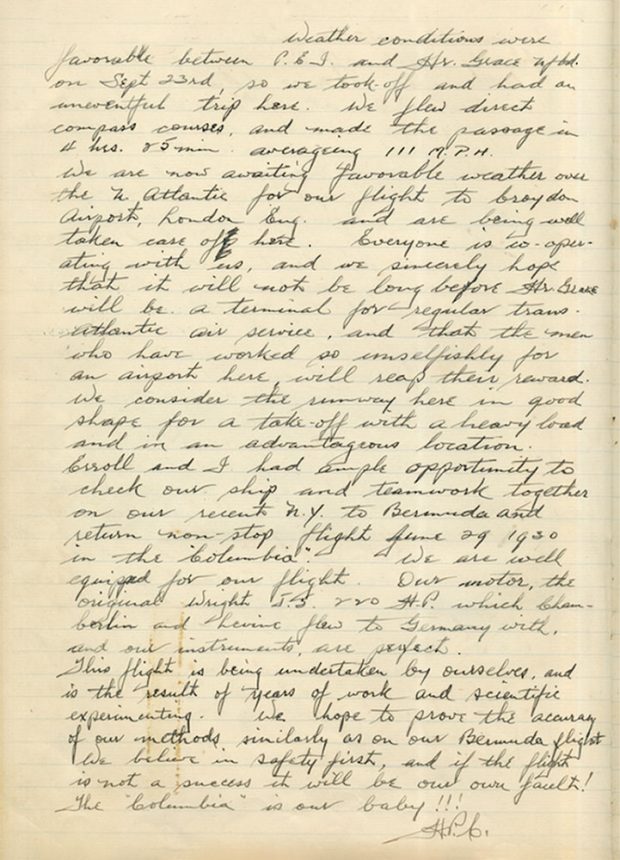 Weather conditions were
favorable between P.E.I. and Hr. Grace Nfld.
on Sept 23rd so we took-off and had an
uneventful trip here. We flew direct
compass courses, and made the passage in
4 hrs. 25 min. averageing 111 M.P.H.
We are now awaiting favorable weather over
the N. Atlantic for our flight to Croydon
Airport, London Eng. and are being well
taken care of here. Everyone is co-oper-
ating with us, and we sincerely hope
that it will not be long before Hr. Grace
will be a terminal for regular trans.
atlantic air service, and that the men
who have worked so unselfishly for
an airport here, will reap their reward.
We consider the runway here in good
shape for a take-off with a heavy load
and in an advantageous location.
Erroll and I had ample opportunity to
check our ship and teamwork together
on our recent N.Y. to Bermuda and
return non-stop flight June 29 1930
in the "Columbia". We are well
equipped for our flight. Our motor, the
original Wright J.5. 220 H.P. which Cham-
berlin and Levine flew to Germany with,
and our instruments, are perfect.
This flight is being undertaken by ourselves, and
is the result of years of work and scientific
experimenting. We hope to prove the accuracy
of our methods similarly as on our Bermuda flight
We believe in safety first, and if the flight
is not a success it will be our own fault!
The "Columbia" is our baby!!!
H.P.C.